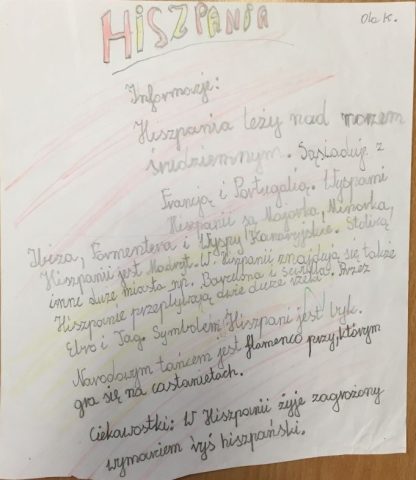 HISZPANIA
Ola K.
Informacje:
Hiszpania leży nad morzem
śródziemnym. Sąsiaduje z
Francją i Portugalią. Wyspami
Hiszpanii są Majorka, Minorka,
Ibiza, Formentera i Wyspy Kanaryjskie. Stolicą
Hiszpanii jest Madryt. W Hiszpanii znajdują się także
inne duże miasta np. Barcelona i Sewilla. Przez
Hiszpanie przepływają dwie duże rzeki
Ebro i Tag. Symbolem Hiszpani jest byk.
Narodowym tańcem jest flamenco przy, którym
gra się na castanietach.
Ciekawostki: W Hiszpanii żyje zagrożony
wymarciem ryś hiszpański.